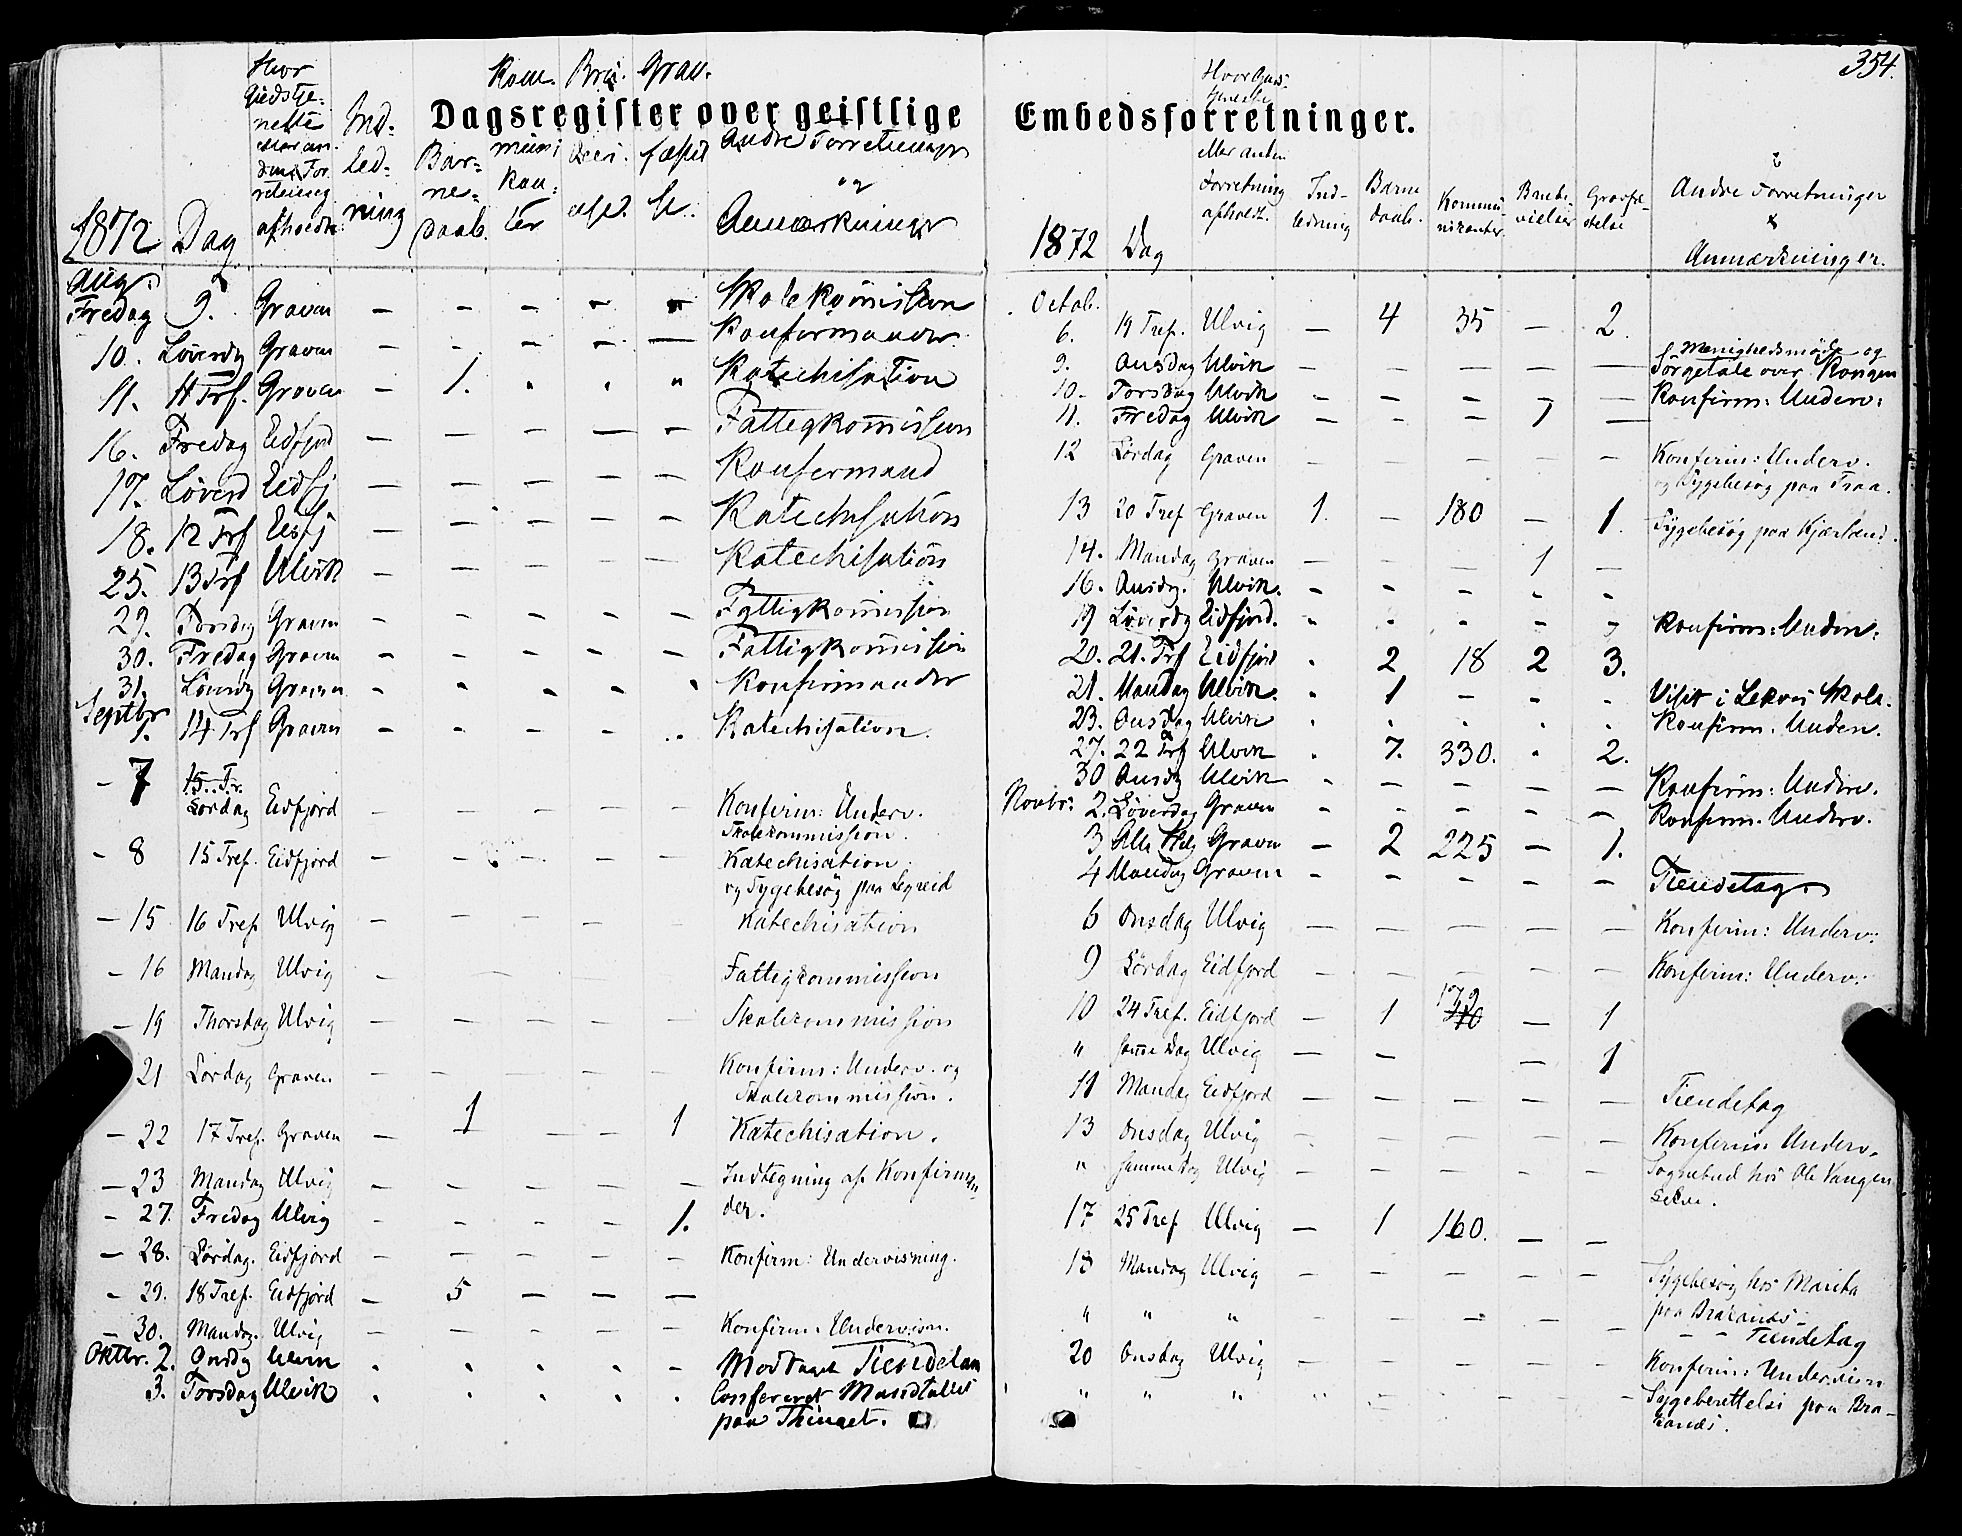 354.
Dagsregister over geistlige Embedsforretninger.
1872 Dag Hvor Gudstjenesten eller anden Forretning afholdtes Indledning Barnedaab. Kommunikanter Andre Forretninger og Anmærkninger
Aug.
Fredag 9. Graven – – – – " Skolekommission
10. Løverdg Graven – – – – – Konfirmander
11. 11 Trf. Graven – 1. " " " Katechisation
16. Fredag Eidfjord – – – – – Fattigkommission
17. Løverd Eidfj – – – – – Konfermand
18. 12 Trf Eidfj – – – – – Katechisation
25. 13 Trf Ulvik – – – – – Katechisation
29. Torsdg Graven – – – – – Fattigkommission
30. Fredag Graven – – – – – Fattigkommission
31. Løverdg Graven - - - - - Konfirmander
Septbr
1. 14 Trf Graven - - - - .. Katechisation.
– 7 15. Tr.
Lørdag Eidfjord – – – – – Konfirm: Underv.
Skolekommission.
– 8 15 Tref. Eidfjord – – – – – Katechisation
og Sygebesøg paa Legreid
– 15 16 Tref Ulvig – – – – – Katechisation
– 16 Mandag Ulvig – – – Fattigkommission
– 19 Thorsdag Ulvig – – – – – Skolekommission
21 Lørdag Graven – – – – – Konfirm: Underv. og
Skolekommission.
– 22 17 Tref. Graven – 1 – – 1 Katechisation.
– 23 Mandag Ulvig – – – – – Indtegning af Konfirman
der.
– 27. Fredag Ulvig – – – – 1.
– 28. Lørdag. Eidfjord – – – – – Konfirm: Undervisning.
– 29. 18 Tref. Eidfjord – 5 – – –
– 30. Mandag. Ulvig – – – – – Konfirm. Undervisn.
Oktbr. 2. Onsdg Ulvik . . . . – Modtaget Tienden
3. Torsdag Ulvik . . . . . Confereret Mandtallet
paa Thinget.
1872 Dag Hvor Gudstjeneste eller anden Forretning afholdt. Indledning Barnedaab. Kommunikanter. Brudevielser Gravfæstelse Andre Forretninger & Anmærkninger.
Octob.
6. 19 Tref. Ulvig – 4 35 – 2.
9. Onsdag Ulvik – – – – – Menighedsmøde og
Sørgetale over Kongen
10. Torsdag Ulvik – – – – – Konfirm: Underv:
11. Fredag Ulvik – – – 1 –
12 Lørdag Graven – – – – – Konfirm: Underv.
og Sygebesøg paa Traa.
13 20 Tref Graven 1. – 180 – 1. Sygebesøg paa Kjærland.
14. Mandag Graven – – – 1 –
16. Onsdg. Ulvik. - - - - -
19 Løverdg Eidfjord. - - - - - Konfirm: Underv.
20. 21. Trf Eidfjord . 2 18 2 3.
21. Mandag Ulvik. . 1 – - . Visit i Lekves Skole.
23. Onsdag Ulvik . . . . . Konfirm. Underv.
27. 22 Trf Ulvik . 7. 330. . 2.
30 Onsdg Ulvik - – – – – Konfirm: Underv.
Novbr: 2. Løverdag Graven - - - - – Konfirm. Underv.
3 Alle Helg Graven – 2 225 – 1.
4 Mandag Graven - – - - – Tiendetag
6 Onsdag Ulvig – – – – – Konfirm: Underv:
9 Lørdag Eidfjord – – – – – Konfirm: Underv.
10 24 Tref. Eidfjord – 1 172 – 1
" samme Dag Ulvig – – – 1
11 Mandag Eidfjord – – – – – Tiendetag
13 Onsdag Ulvig – – – – – Konfirm Underv.
" samme Dag Ulvig – – – – – Sognebud hos Ole Vangen
17 25 Tref Ulvig – 1 160. – –
18 Mandag Ulvig – – – – – Sygebesøg hos Marita
paa Brakanes
" " " – – – – – Tiendetag
20 Onsdag Ulvig – – – – – Konfirm: Undervisn
" " " – – – – – Sygeberettelse paa Bra–
kanes.